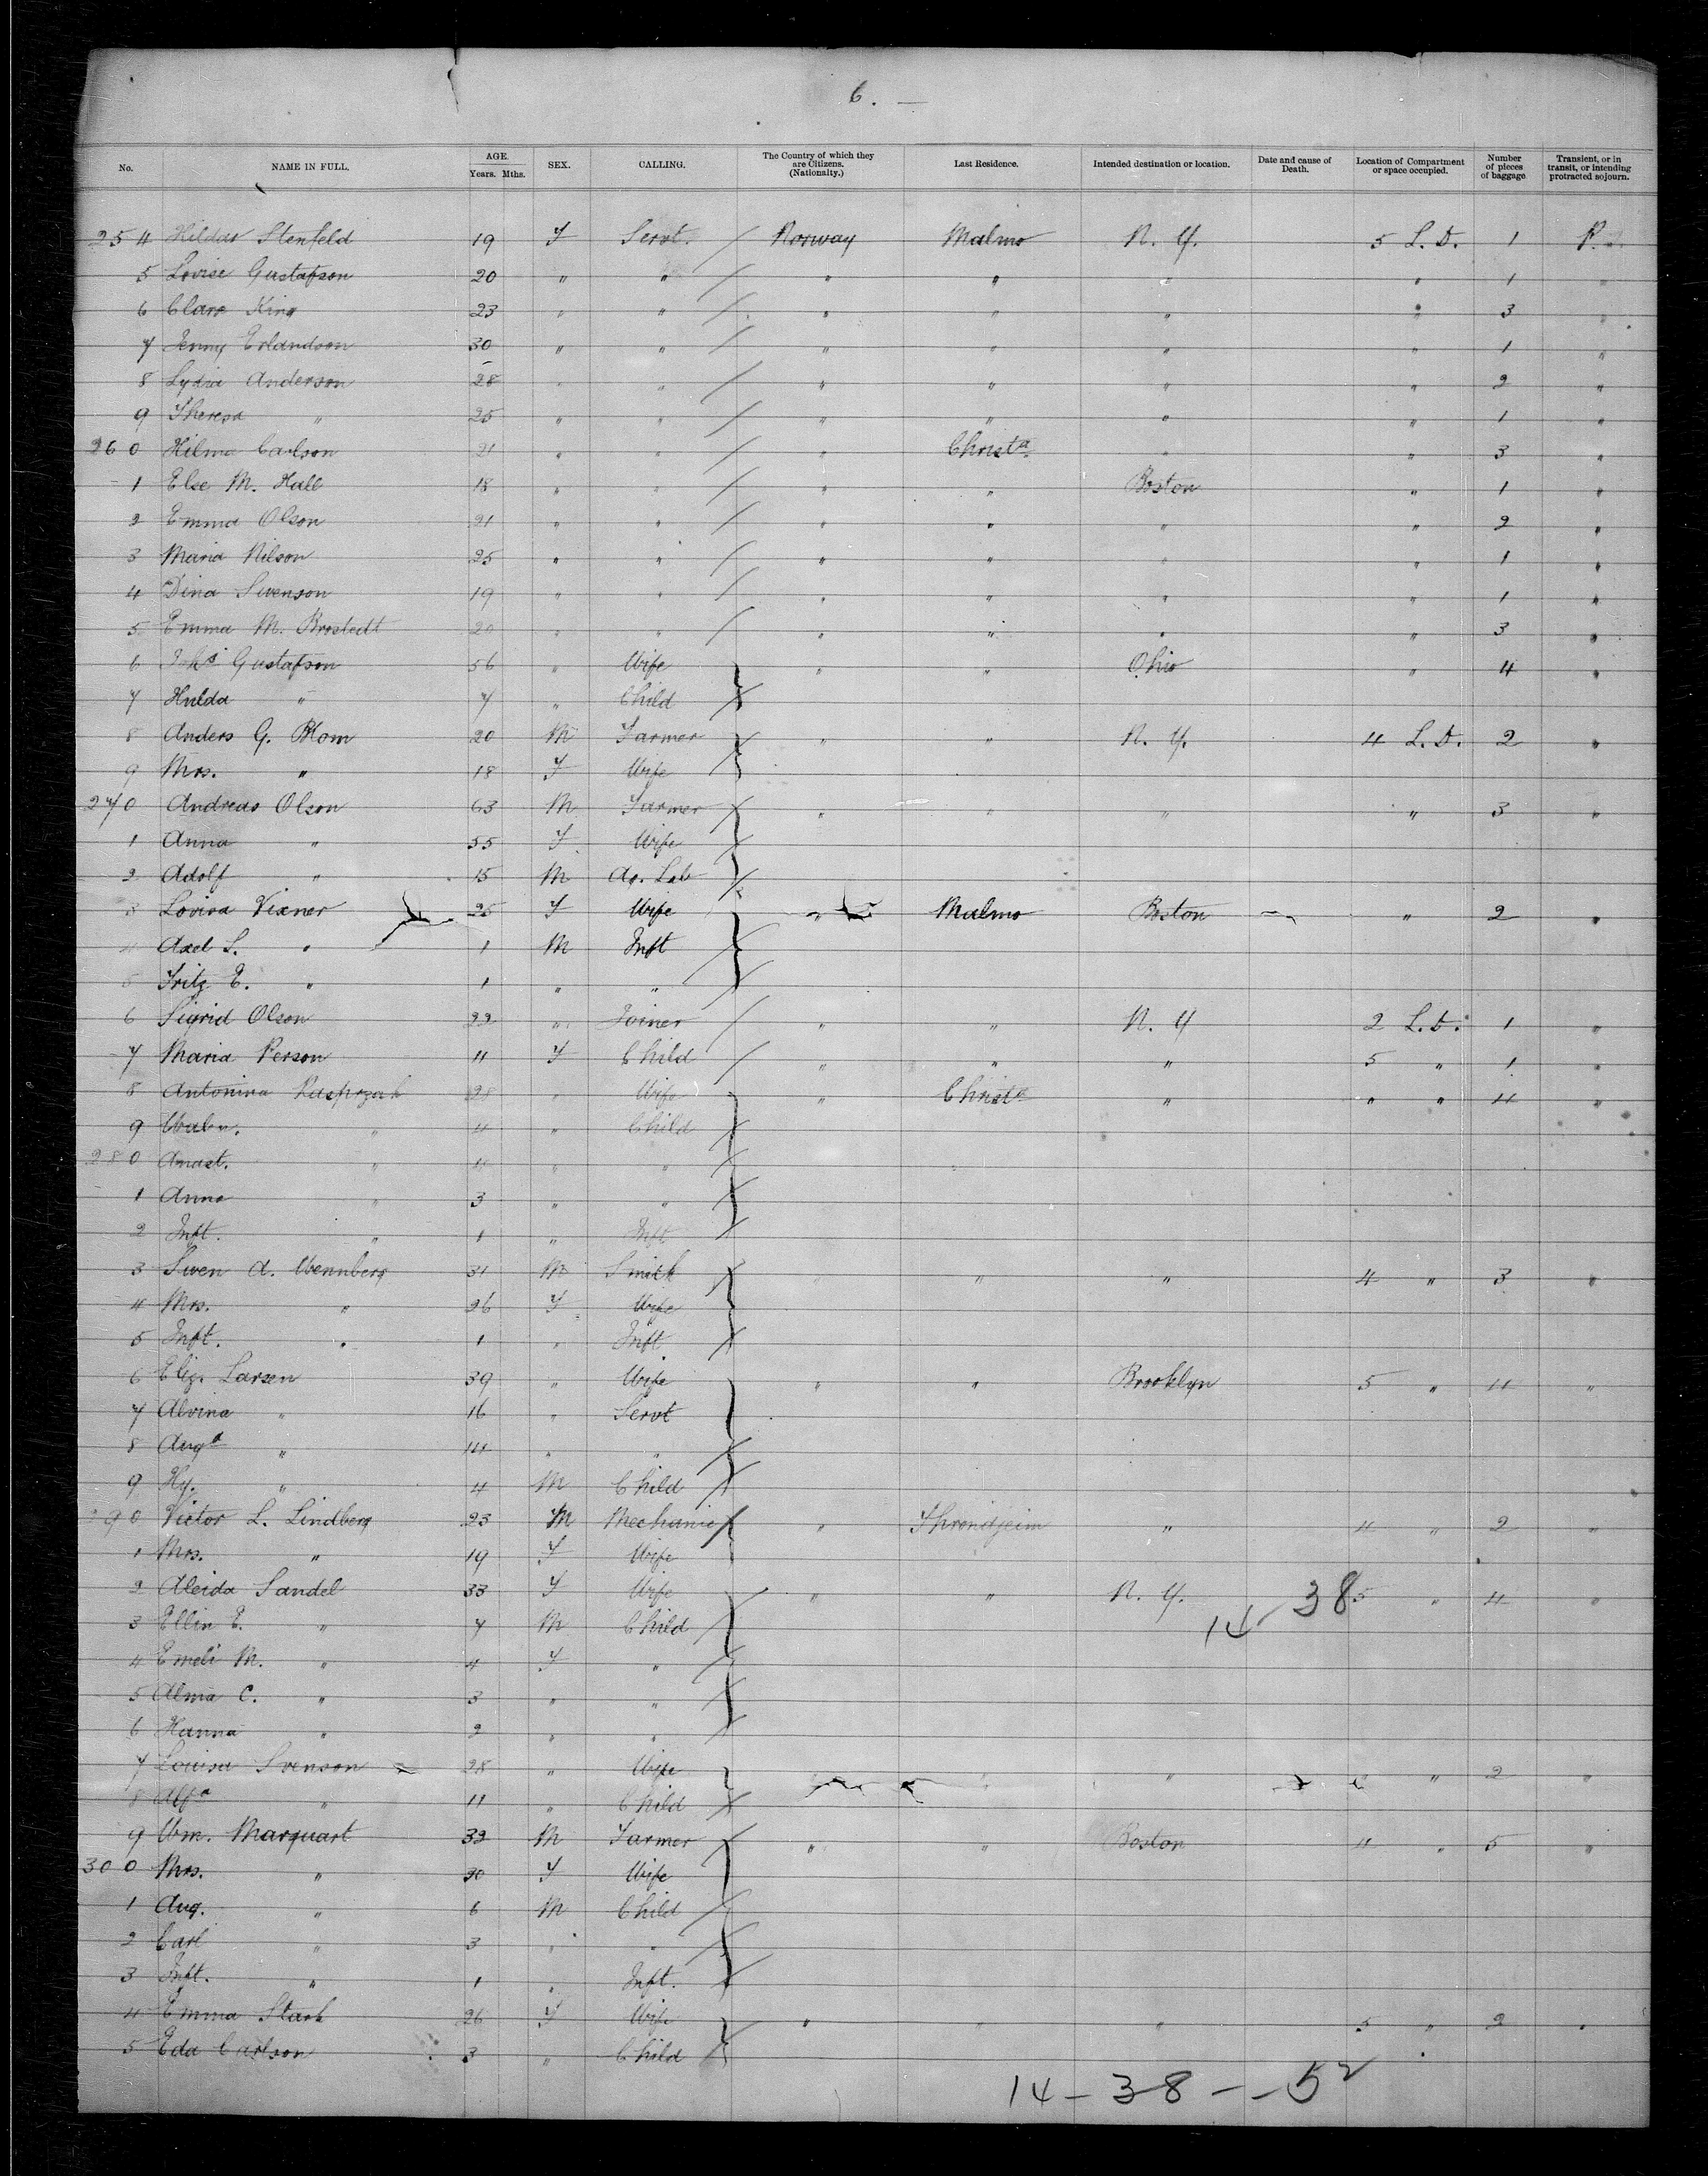 6. —
No. NAME IN FULL. AGE. Years. Mths. SEX. CALLING. The Country of which they are Citizens. (Nationalty.) Last Residence. Intended destination or location. Date and cause of Death. Location of Compartment or space occupied. Number of pieces of baggage Transient, or in transit, or intending protracted sojourn.
254 Hildar Stenfeld 19 F Servt. / Norway Malmo N. Y. 5 L. D. 1 P.
5 Lovise Gustafson 20 " " / " " " " 1 "
6 Clara King 23 " " / " " " " 3 "
7 Jenny Erlandson 30 " " / " " " " 1 "
8 Lydia Anderson 28 " " / " " " " 2 "
9 Theresa " 25 " " / " " " " 1 "
260 Hilma Carlson 21 " " / " Christa. " " 3 "
1 Else M. Hall 18 " " / " " Boston " 1 "
2 Emma Olson 21 " " / " " " " 2 "
3 Maria Nilson 25 " " / " " " " 1 "
4 Dina Swenson 19 " " / " " " " 1 "
5 Emma M. Brostedt 20 " " / " " " " 3 "
6 Gustafson 56 " Wife " " Ohio " 4 "
7 Hulda " 7 " Child
8 Anders G. Blom 20 M Farmer " " N. Y. 4 L. D. 2 "
9 Mrs. " 18 F Wife
270 Andreas Olson 63 M Farmer " " " " 3 "
1 Anna " 55 F Wife
2 Adolf " 15 M Ag. Lab
3 Lovisa Vixner 25 F Wife " Malmo Boston " 2 "
4 Axel S. " 1 M Inft
5 Fritz E. " 1 " "
6 Sigrid Olson 22 " Joiner / " " N. Y 2 L. D. 1 "
7 Maria Person 11 F Child / " " " 5 " 1 "
8 Antonina Kasprzak 28 " Wife " Christa " " " 4 "
9 Waln. " 4 " Child
280 Anast. " 4 " "
1 Anna " 3 " "
2 Inft. " 1 " Inft
3 Swen A. Wennberg 31 M Smith " " " 4 " 3 "
4 Mrs. " 26 F Wife
5 Inft. " 1 " Inft
6 Eliz. Larsen 39 " Wife " " Brooklyn 5 " 4 "
7 Alvina " 16 " Servt
8 Auga " 14 " "
9 Hy. " 4 M Child
290 Victor L. Lindberg 23 M Mechanic " Throndjeim " 4 " 2 "
1 Mrs. " 19 F Wife
2 Aleida Sandel 33 F Wife " " N. Y. 5 " 4 "
14 - 38
3 Ellin E. " 7 M Child
4 Emeli M. " 4 F "
5 Alma C. " 3 " "
6 Hanna " 2 " "
7 Louisa Svenson 28 " Wife " " " 2 "
8 Alfa " 11 " Child
9 Wm. Marquart 32 M Farmer " " Boston 4 " 5 "
300 Mrs. " 30 F Wife
1 Aug. " 6 M Child
2 Carl " 3 " "
3 Inft. " 1 " Inft.
4 Emma Stark 26 F Wife " " " 5 " 2 "
5 Eda Carlson 3 " Child
14 - 38 - - 52